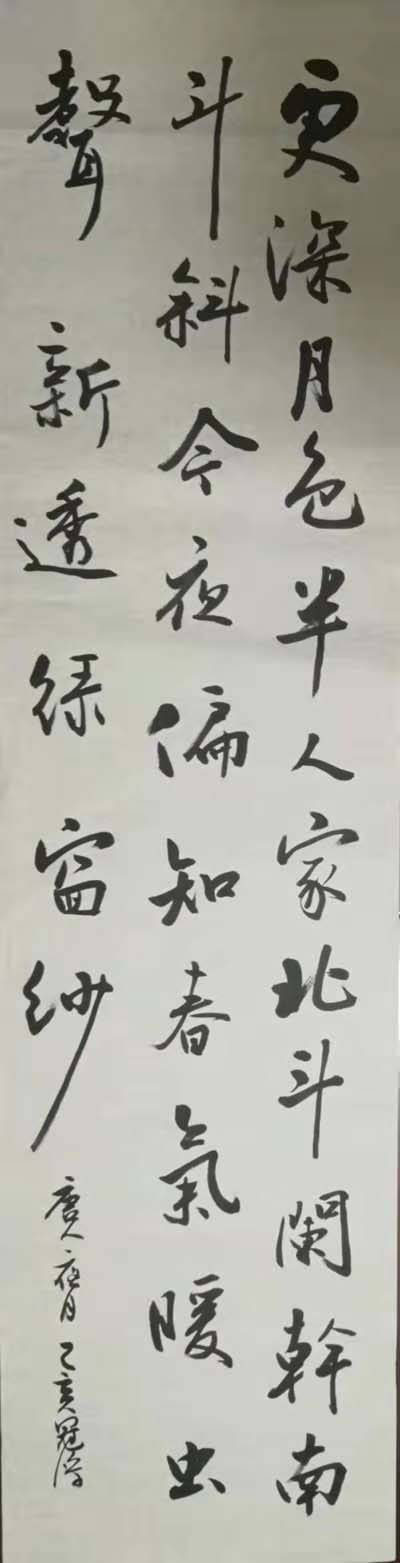 更深月色半人家北斗闌幹南
斗斜今夜偏知春氣暖虫
聲新透綠窗紗
唐人夜月 乙亥冠